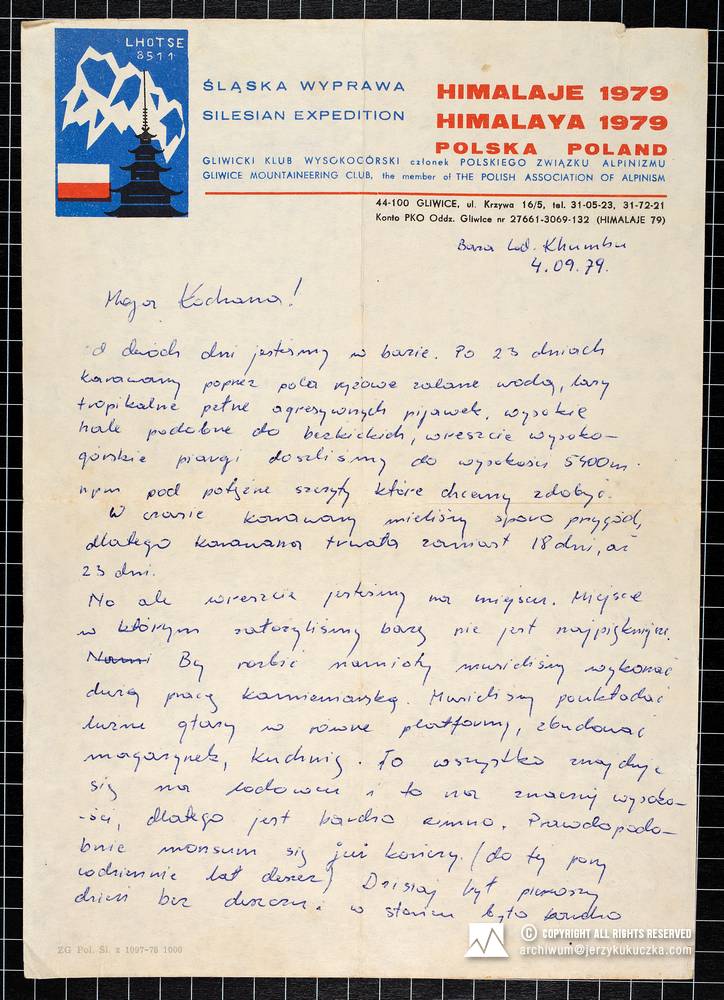 LHOTSE
8511
ŚLĄSKA WYPRAWA
SILESIAN EXPEDITION
HIMALAJE 1979
HIMALAYA 1979
POLSKA POLAND
GLIWICKI KLUB WYSOKOGÓRSKI członek POLSKIEGO ZWIĄZKU ALPINIZMU
GLIWICE MOUNTAINEERING CLUB, the member of THE POLISH ASSOCIATION OF ALPINISM
44-100 GLIWICE, ul. Krzywa 16/5, tel. 31-05-23, 31-72-21
Konto PKO Oddz. Gliwice nr 27661-3069-132 (HIMALAJE 79)
Baza lod. Khumbu
4.09.79.
Moja Kochana!
Od dwóch dni jesteśmy w bazie. Po 23 dniach
karawany poprzez pola ryżowe zalane wodą, lasy
tropikalne pełne agresywnych pijawek, wysokie
hale podobne do beskidzkich, wreszcie wysoko-
górskie piargi doszliśmy do wysokości 5400m.
npm pod potężne szczyty które chcemy zdobyć.
W czasie karawany mieliśmy sporo przygód,
dlatego karawana trwała zamiast 18 dni, aż
23 dni.
No ale wreszcie jesteśmy na miejscu. Miejsce
w którym założyliśmy bazę nie jest najpiękniejsze.
By rozbić namioty musieliśmy wykonać
dużą pracę kamieniarską. Musieliśmy poukładać
luźne głazy w równe platformy, zbudować
magazynek, kuchnię. To wszystko znajduje
się na lodowcu i to na znacznej wysoko-
-ści, dlatego jest bardzo zimno. Prawdopodo-
bnie monsum się już kończy. (do tej pory
codziennie lał deszcz) Dzisiaj był pierwszy
dzień bez deszczu. w słońcu było bardzo
ZG Pol. Śl. z 1097-78 1000
© COPYRIGHT ALL RIGHTS RESERVED
archiwum@jerzykukuczka.com